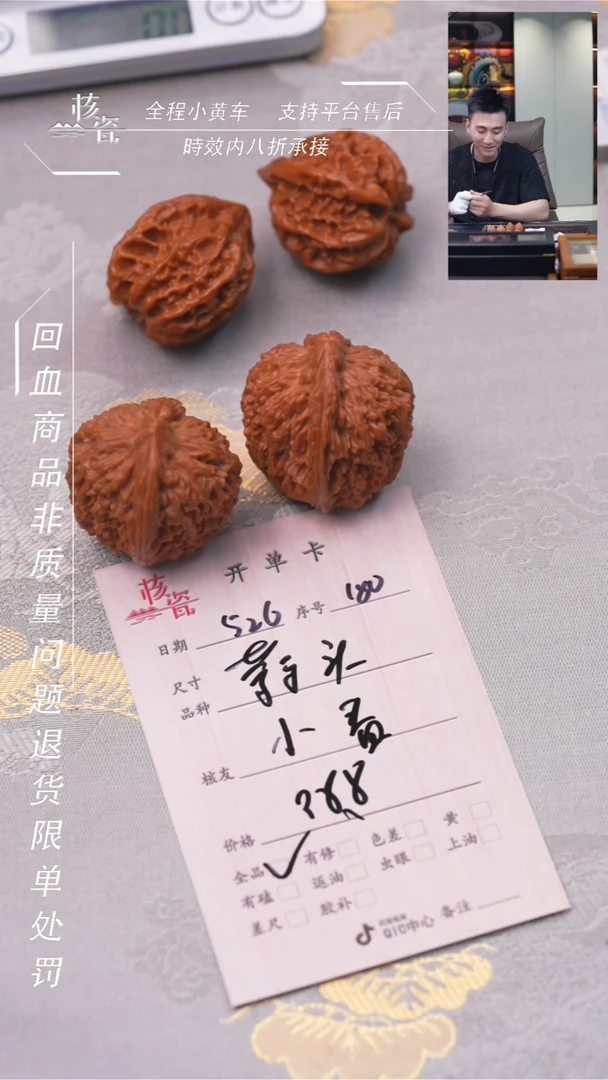 核瓷
全程小黄车 支持平台售后
時效内八折承接
回血商品非质量问题退货限单处罚
核瓷
开单卡
日期 526 序号 180
尺寸
品种 头
核友 小
价格 368
全品 有修 色差 黄
有磕 返油 虫眼 上油
差尺 胶补
抖音电商
QIC中心 备注